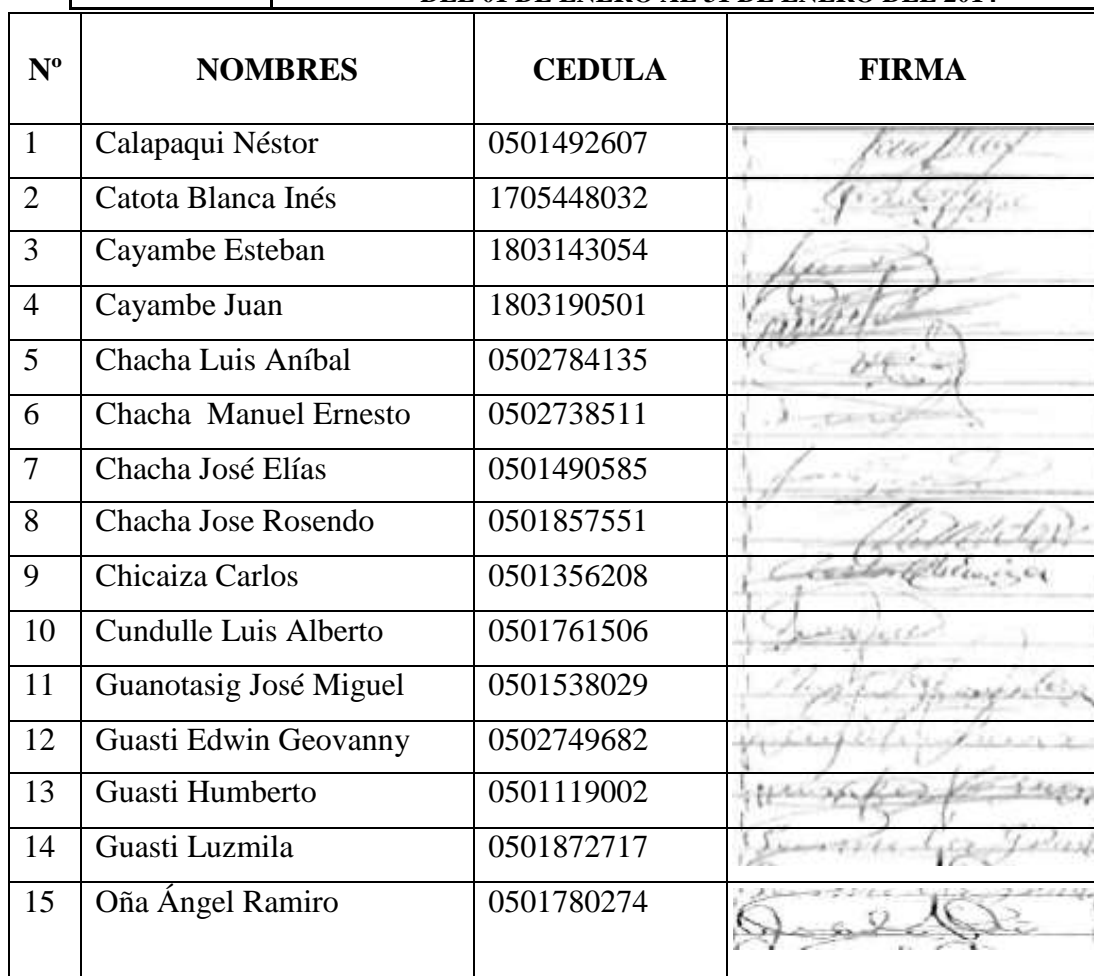 DEL 01 DE ENERO AL 31 DE ENERO DEL 2014
Nº NOMBRES CEDULA FIRMA
1 Calapaqui Néstor 0501492607
2 Catota Blanca Inés 1705448032
3 Cayambe Esteban 1803143054
4 Cayambe Juan 1803190501
5 Chacha Luis Aníbal 0502784135
6 Chacha Manuel Ernesto 0502738511
7 Chacha José Elías 0501490585
8 Chacha Jose Rosendo 0501857551
9 Chicaiza Carlos 0501356208
10 Cundulle Luis Alberto 0501761506
11 Guanotasig José Miguel 0501538029
12 Guasti Edwin Geovanny 0502749682
13 Guasti Humberto 0501119002
14 Guasti Luzmila 0501872717
15 Oña Ángel Ramiro 0501780274